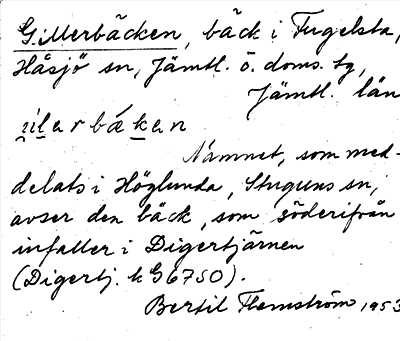 Gillerbäcken, bäck i Fugelsta,
Håsjö sn, Jämtl. ö. doms. tg,
Jämtl. län
jilarbäkan
Namnet, som med-
delats i Höglunda, Stuguns sn,
avser den bäck, som söderifrån
infaller i Digertjärnen
(Digertj. k G6750).
Bertil Flemström 1953